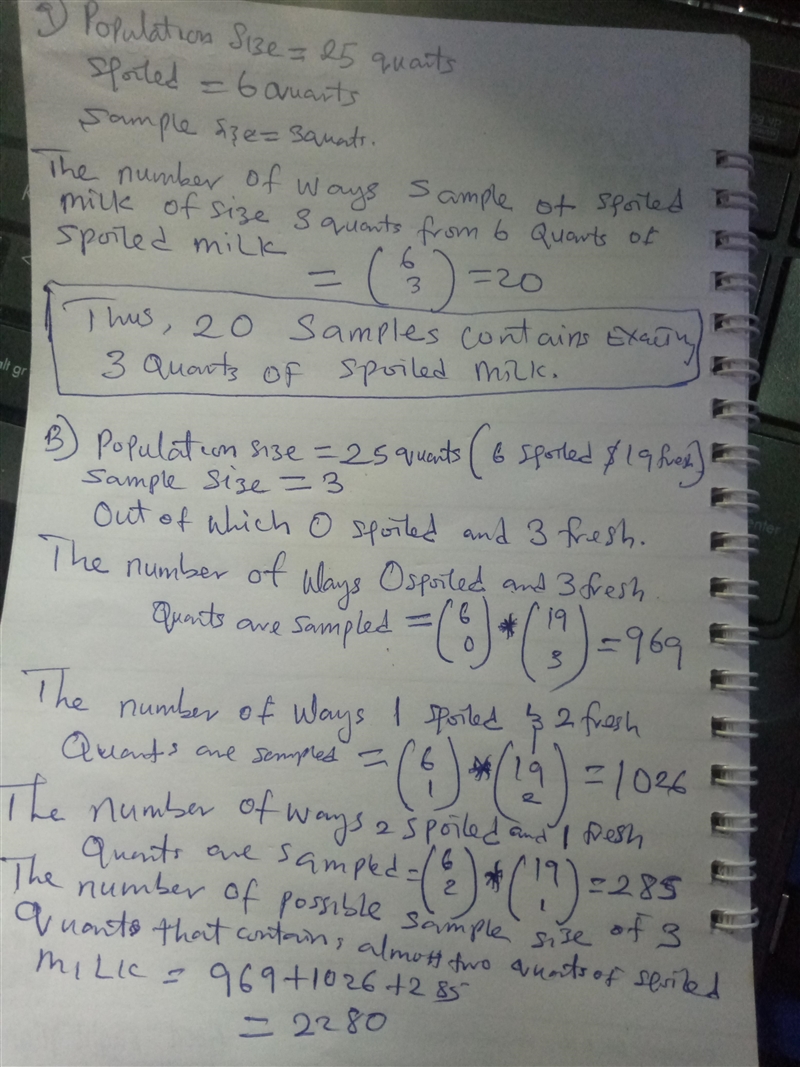 a) Population Size = 25 quarts
Spoiled = 6 quarts
Sample size = 3 quats.
The number of ways sample of spoiled
milk of size 3 quarts from 6 Quarts of
Spoiled milk
= (6 3) = 20
Thus, 20 Samples contains Exactly
3 Quarts of spoiled milk.
B) Population size = 25 quarts (6 spoiled & 19 fresh)
Sample size = 3
Out of which 0 spoiled and 3 fresh.
The number of ways 0 spoiled and 3 fresh
Quarts are sampled = (6 0) * (19 3) = 969
The number of ways 1 spoiled & 2 fresh
Quarts are sampled = (6 1) * (19 2) = 1026
The number of ways 2 spoiled and 1 fresh
Quarts are sampled = (6 2) * (19 1) = 285
The number of possible sample size of 3
Quarts that contains almost two quarts of spoiled
MILK = 969+1026+285
= 2280
alt gr
enter